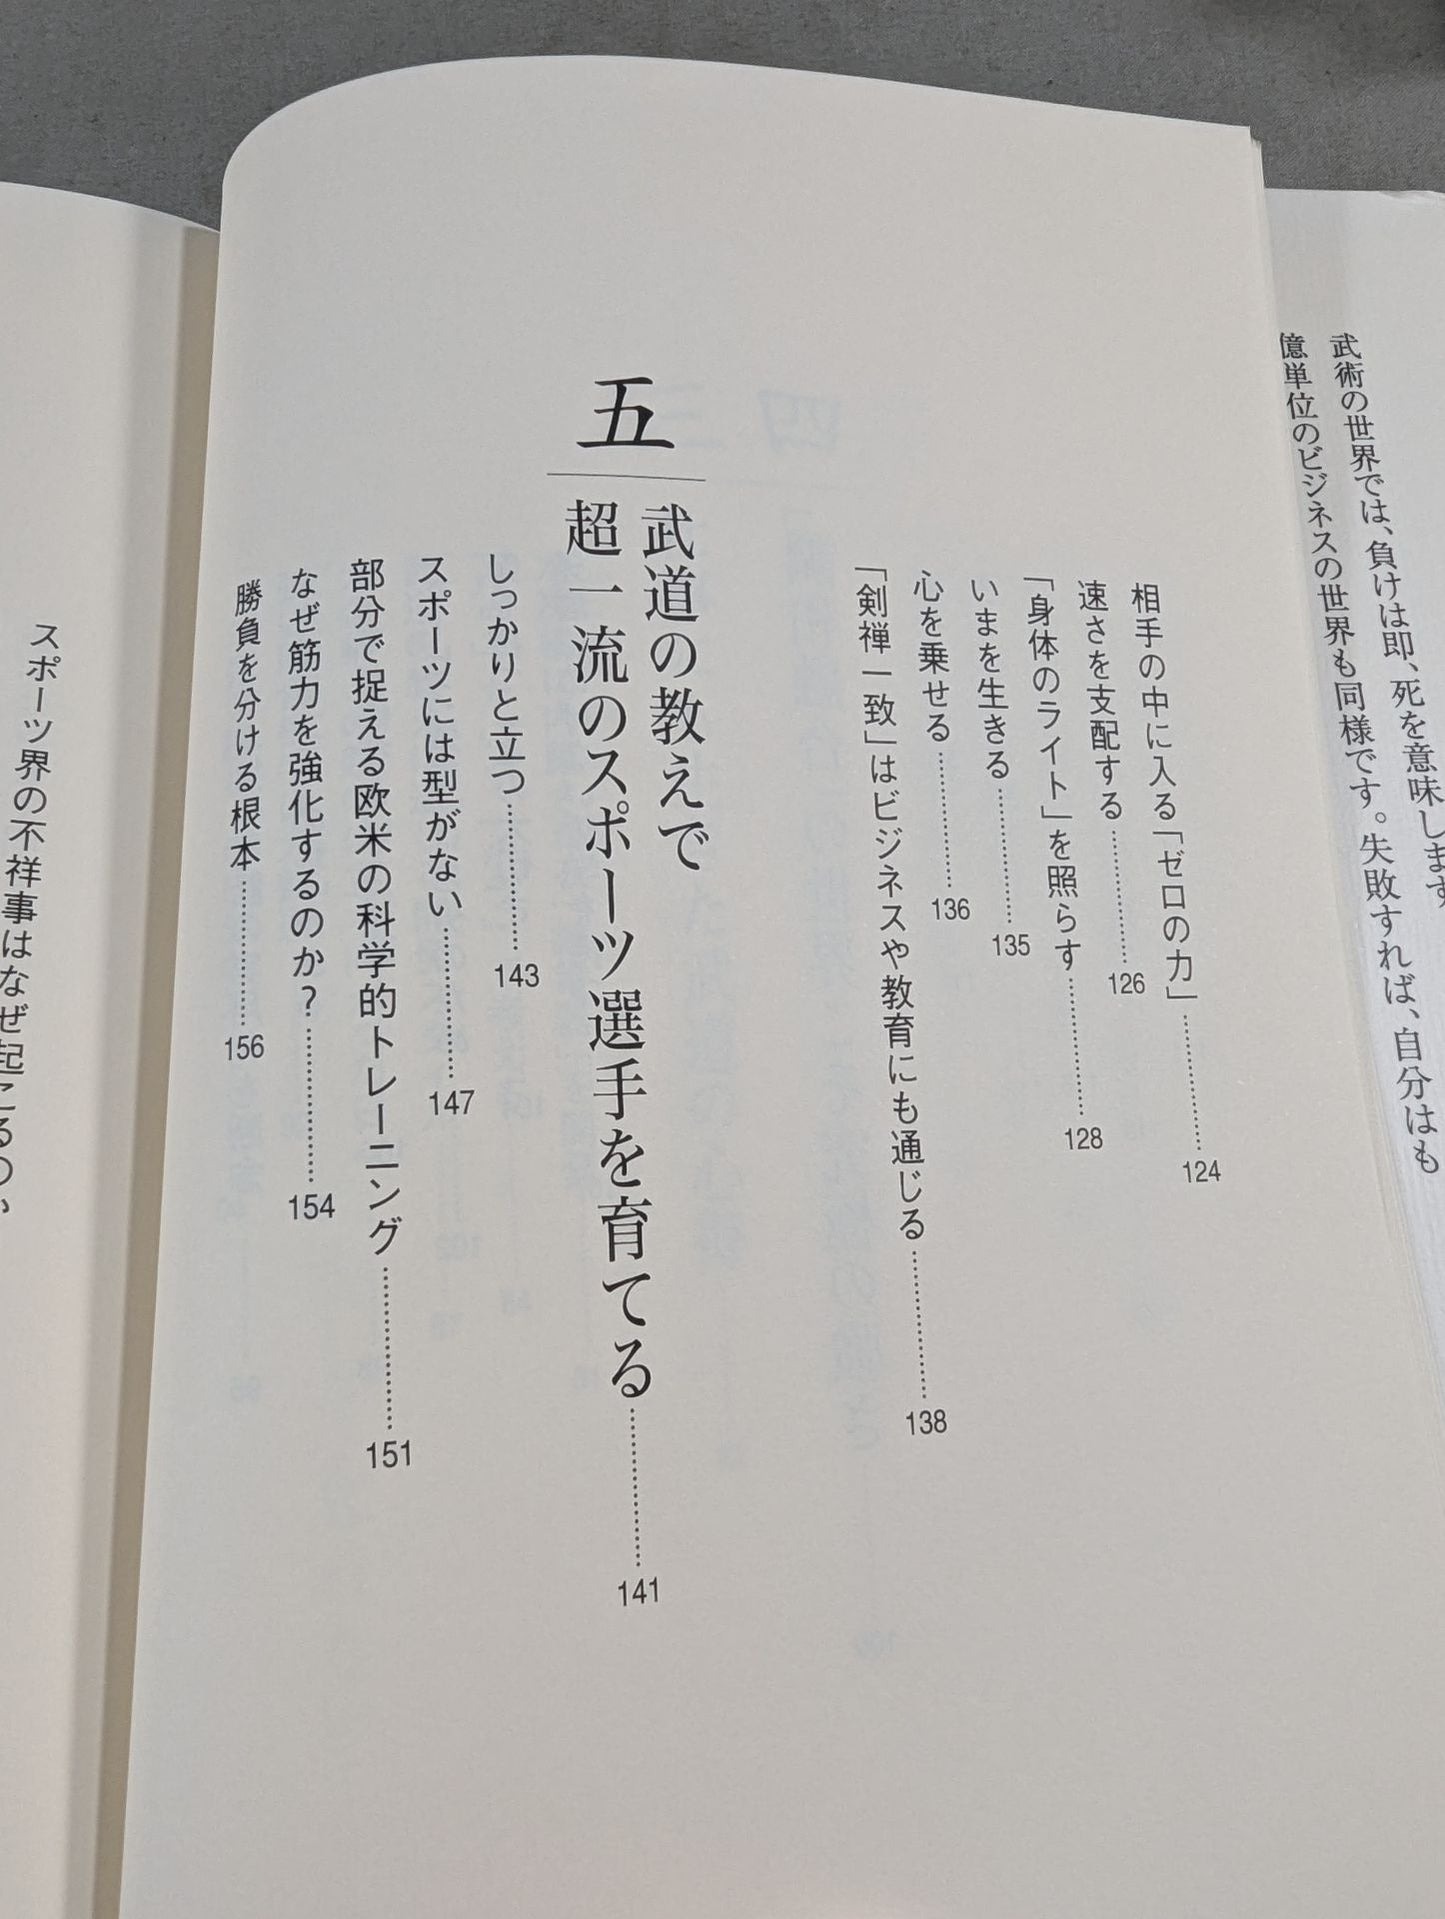 武術の世界では、負けは即、死を意味します
億単位のビジネスの世界も同様です。失敗すれば、自分はも
相手の中に入る「ゼロの力」 124
速さを支配する 126
「身体のライト」を照らす 128
いまを生きる 135
心を乗せる 136
「剣禅一致」はビジネスや教育にも通じる 138
五
武道の教えで
超一流のスポーツ選手を育てる 141
しっかりと立つ 143
スポーツには型がない 147
部分で捉える欧米の科学的トレーニング 151
なぜ筋力を強化するのか？ 154
勝負を分ける根本 156
スポーツ界の不祥事はなぜ起こるのか